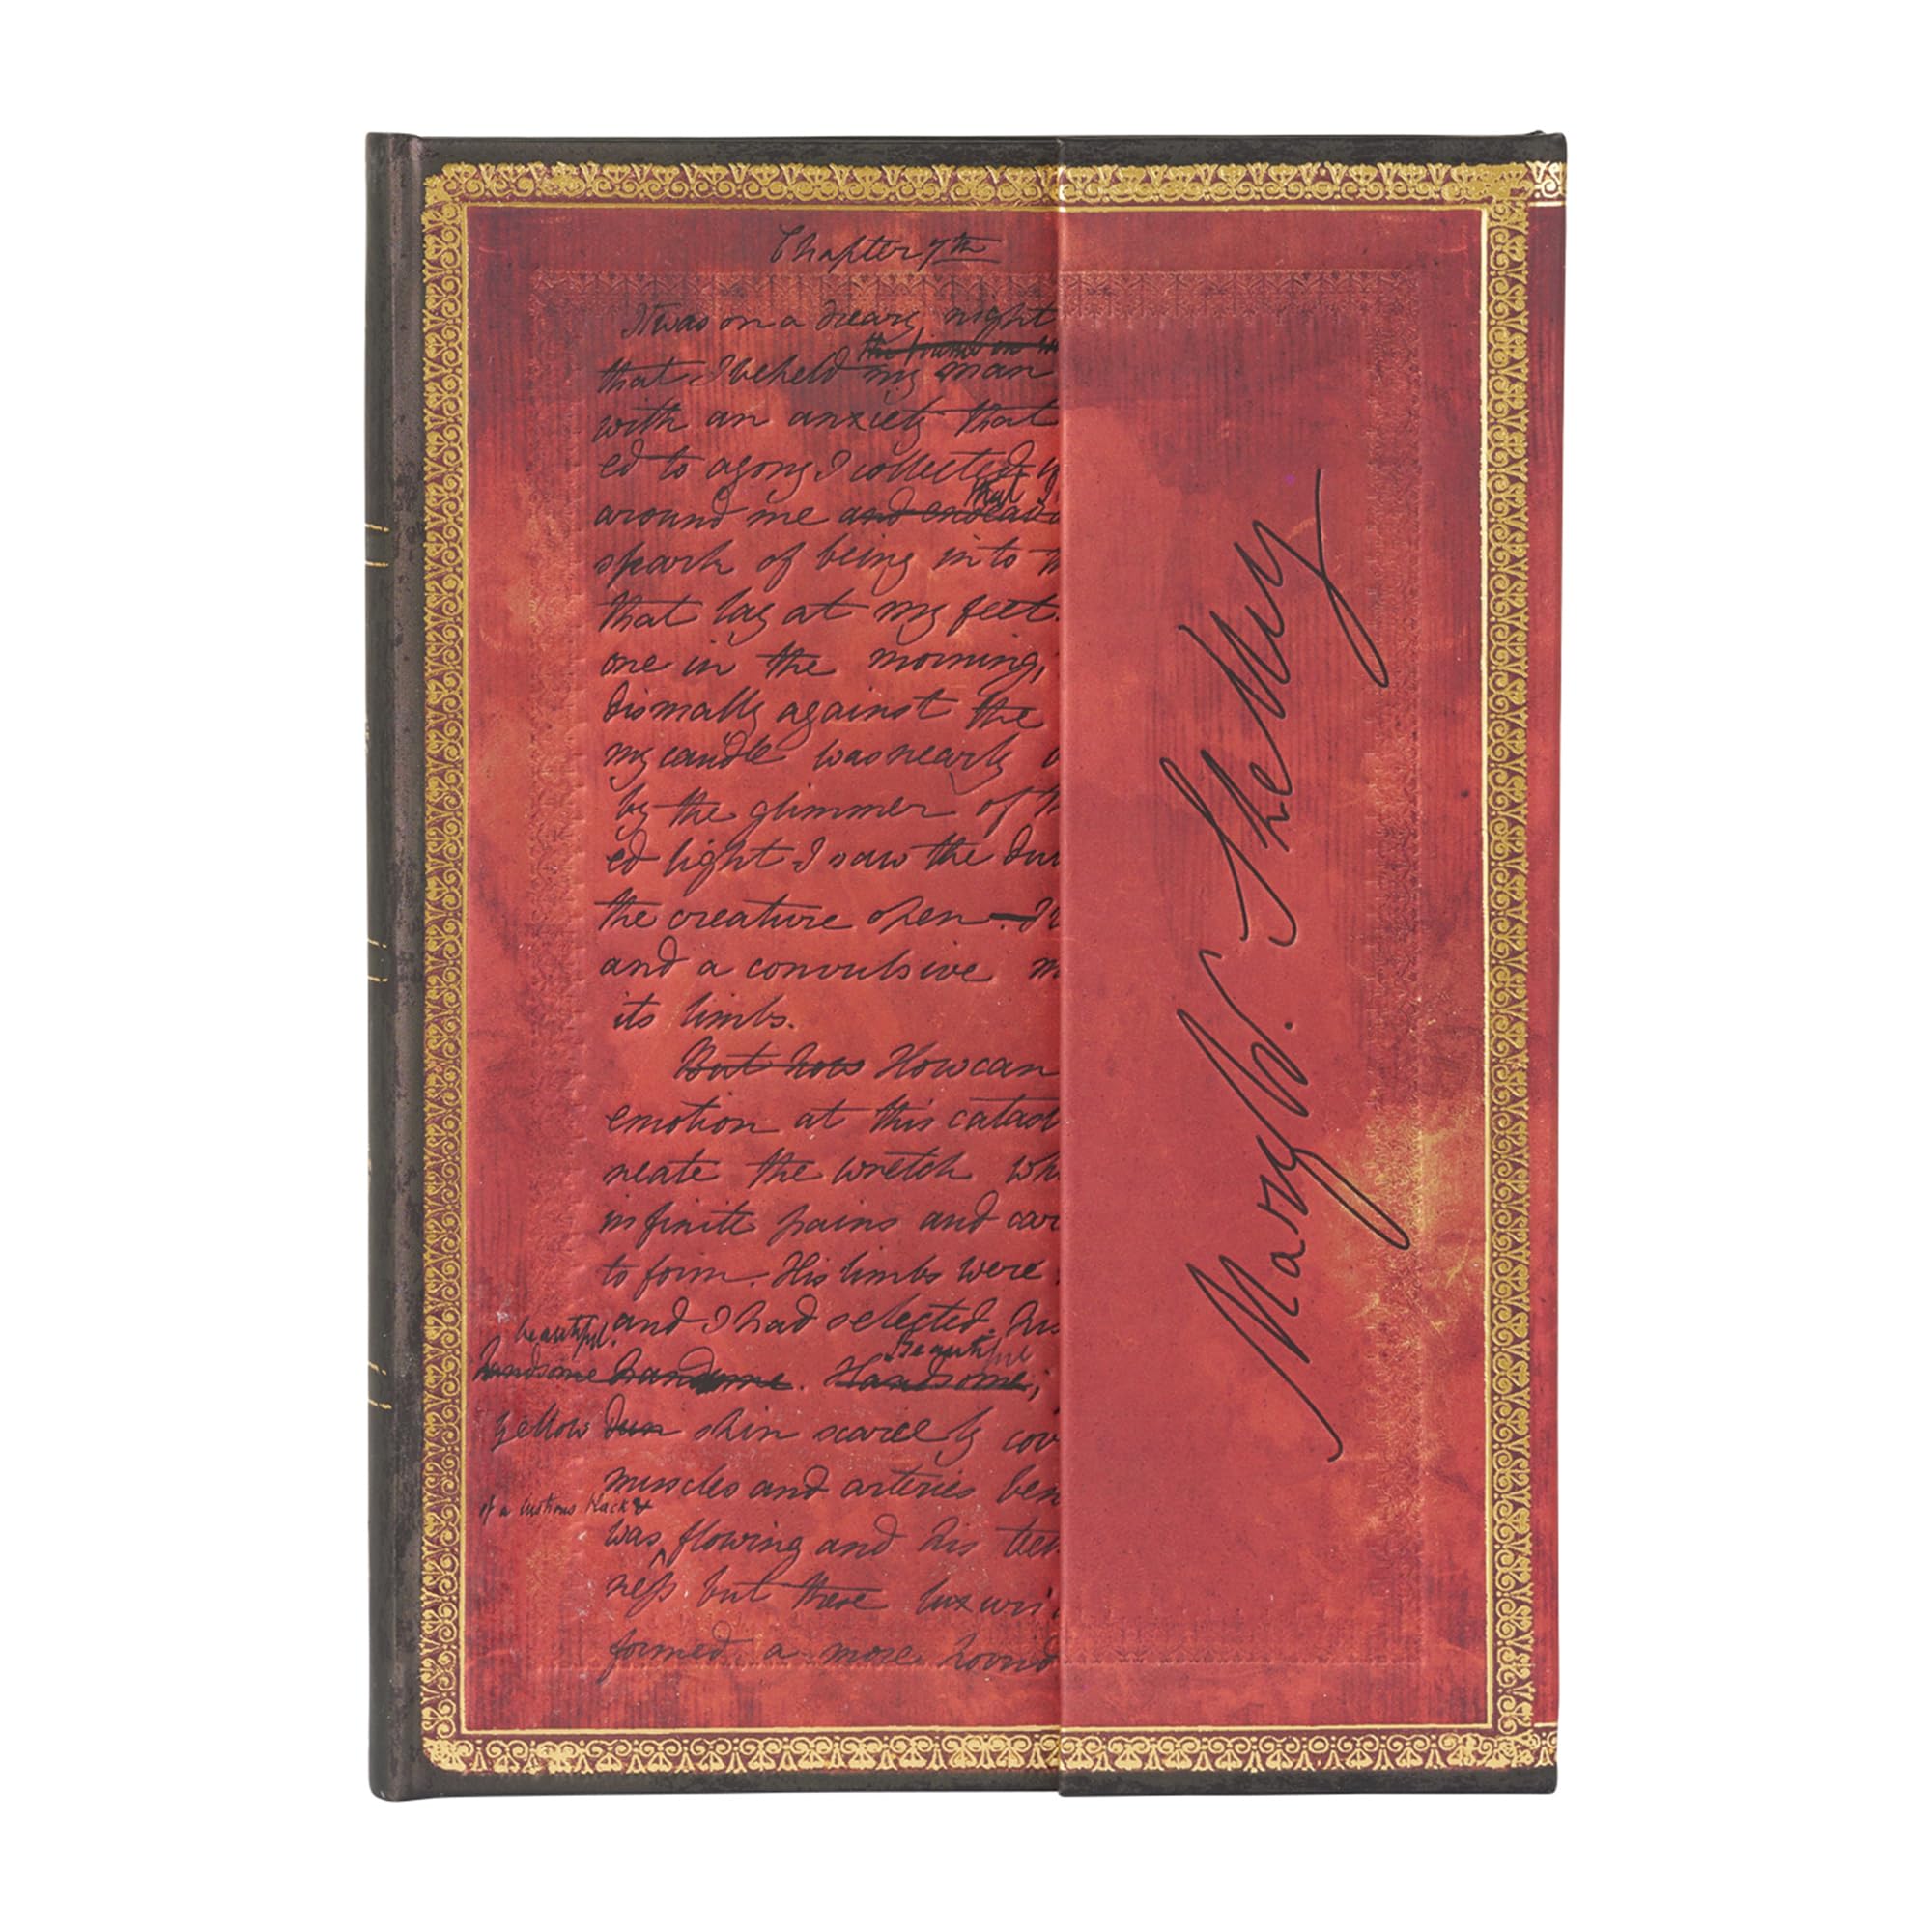 Chapter 7th
It was on a dreary night
that I beheld my man
with an anxiety that
ed to agony I collected
around me and endeavo
that I
spark of being into th
that lay at my feet.
one in the morning,
dismally against the
my candle was nearly
by the glimmer of th
ed light I saw the dul
the creature open.
and a convulsive m
its limbs.
But how How can
emotion at this catast
neate the wretch wh
infinite pains and car
to form. His limbs were
and I had selected his
beautiful.
Beautiful
handsome handsome. Handsome;
yellow dun skin scarcely cov
muscles and arteries ben
of a lustrous black &
was flowing and his teet
ness but these luxuri
formed a more horrid
Mary W. Shelley